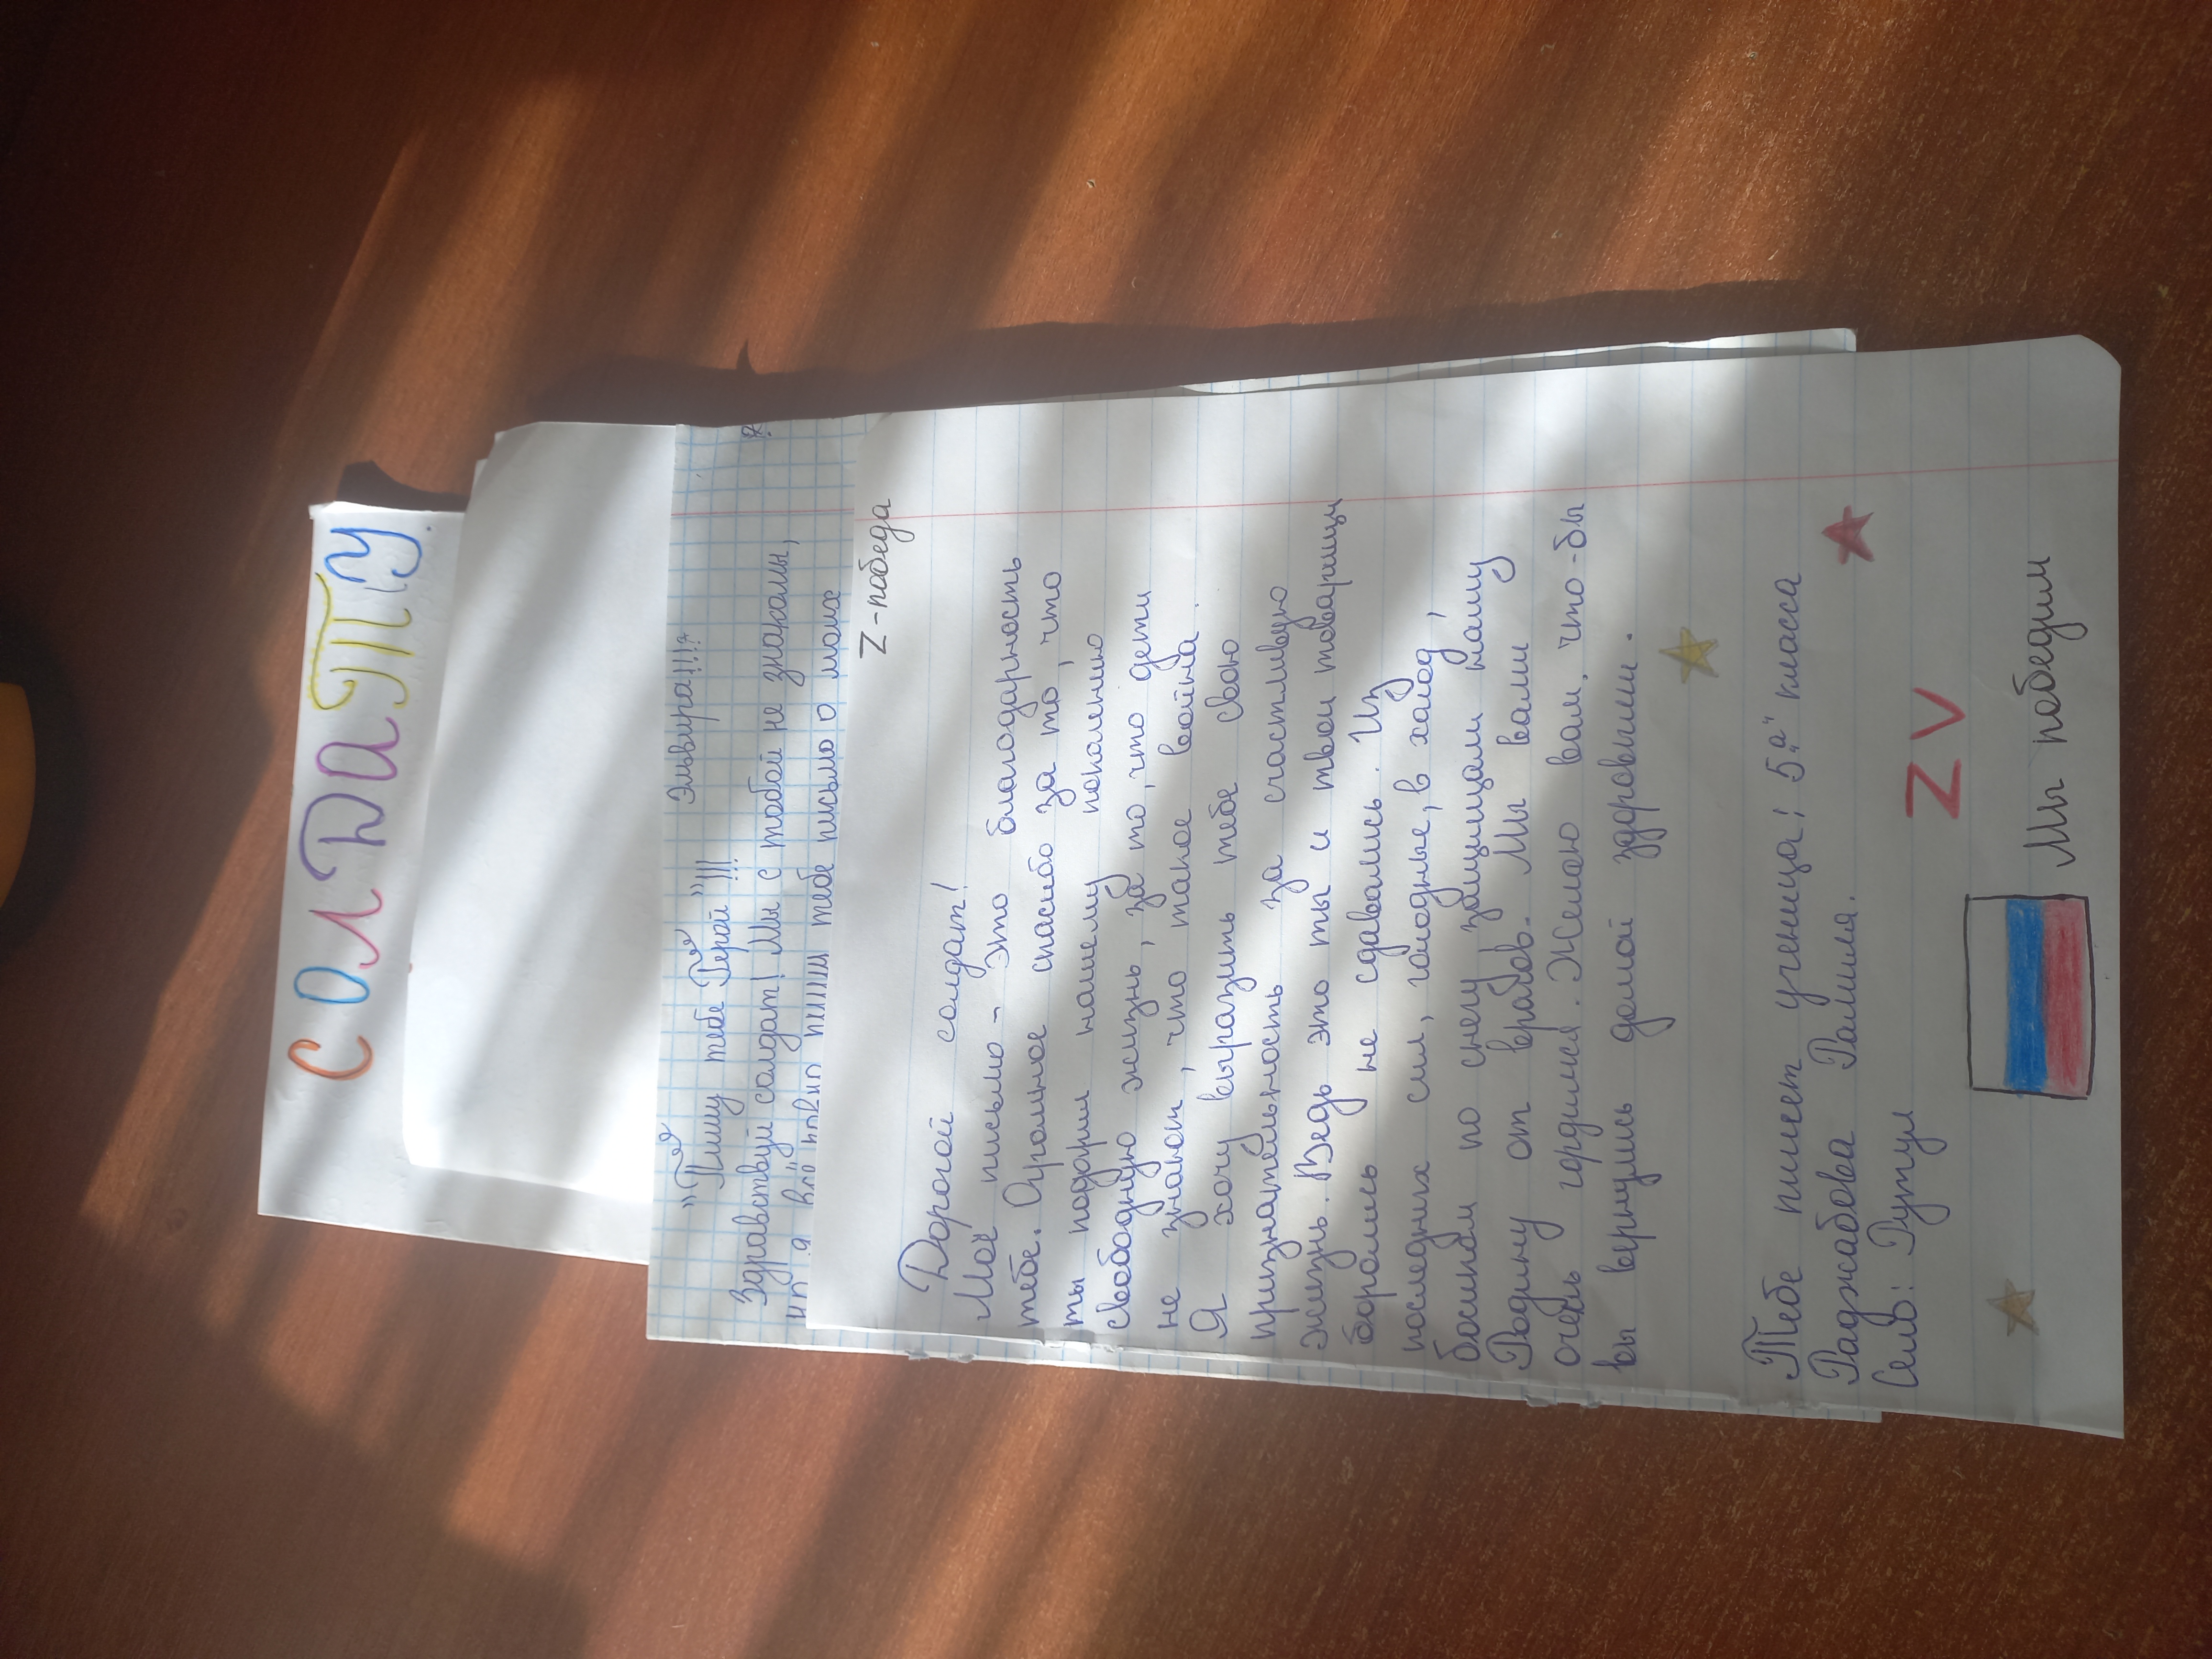 СОЛДАТУ.
Эльвира!!!?
"Пишу тебе Герой"!!!
Здравствуй солдат! Мы с тобой не знакомы,
но я всё равно пишу тебе письмо о моих
Z-победа
Дорогой солдат!
Моё письмо - это благодарность
тебе. Огромное спасибо за то, что
ты подарил нашему поколению
свободную жизнь, за то, что дети
не знают, что такое война.
Я хочу выразить тебе свою
признательность за счастливую
жизнь. Ведь это ты и твои товарищи
боролись не сдавались. Из
последних сил, голодные, в холод,
босиком по снегу защищали нашу
Родину от врагов. Мы вами
очень гордимся. Желаю вам, что-бы
вы вернулись домой здоровыми.
Тебе пишет ученица: 5 "а" класса
Раджабова Рамиля.
Село: Рутул
ZV
Мы победим